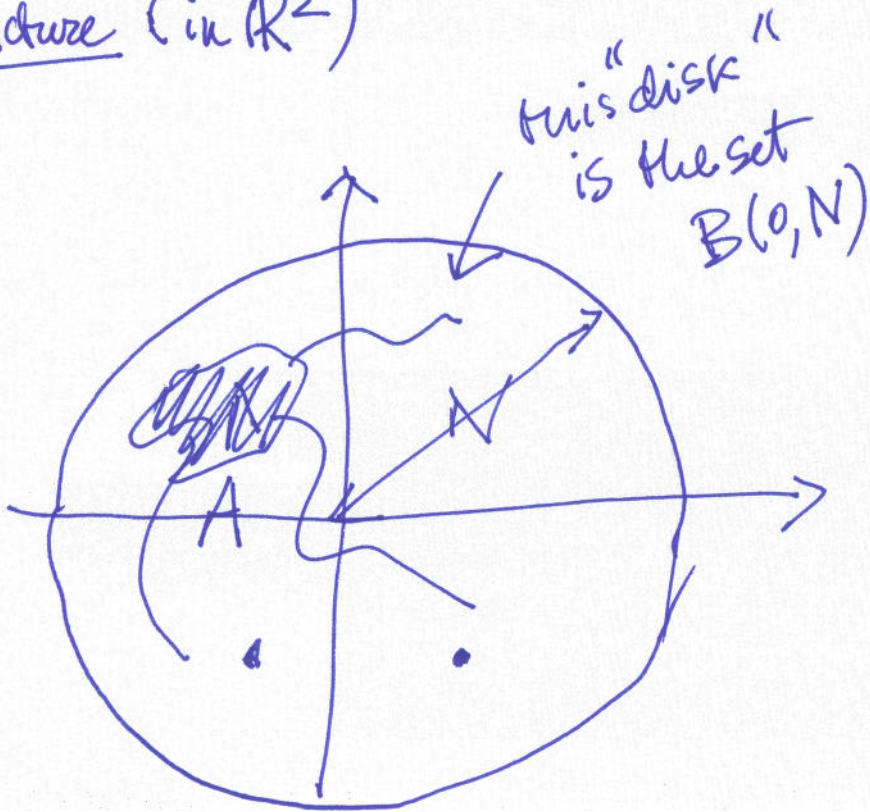 (in ℝ²)
this "disk"
is the set
B(0,N)
N
A